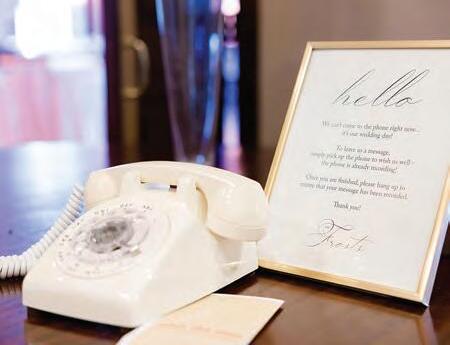 hello
We can't come to the phone right now...
it's our wedding day!
To leave us a message,
simply pick up the phone to wish us well -
the phone is already recording!
Once you are finished, please hang up to
ensure that your message has been recorded.
Thank you!
The Frosts